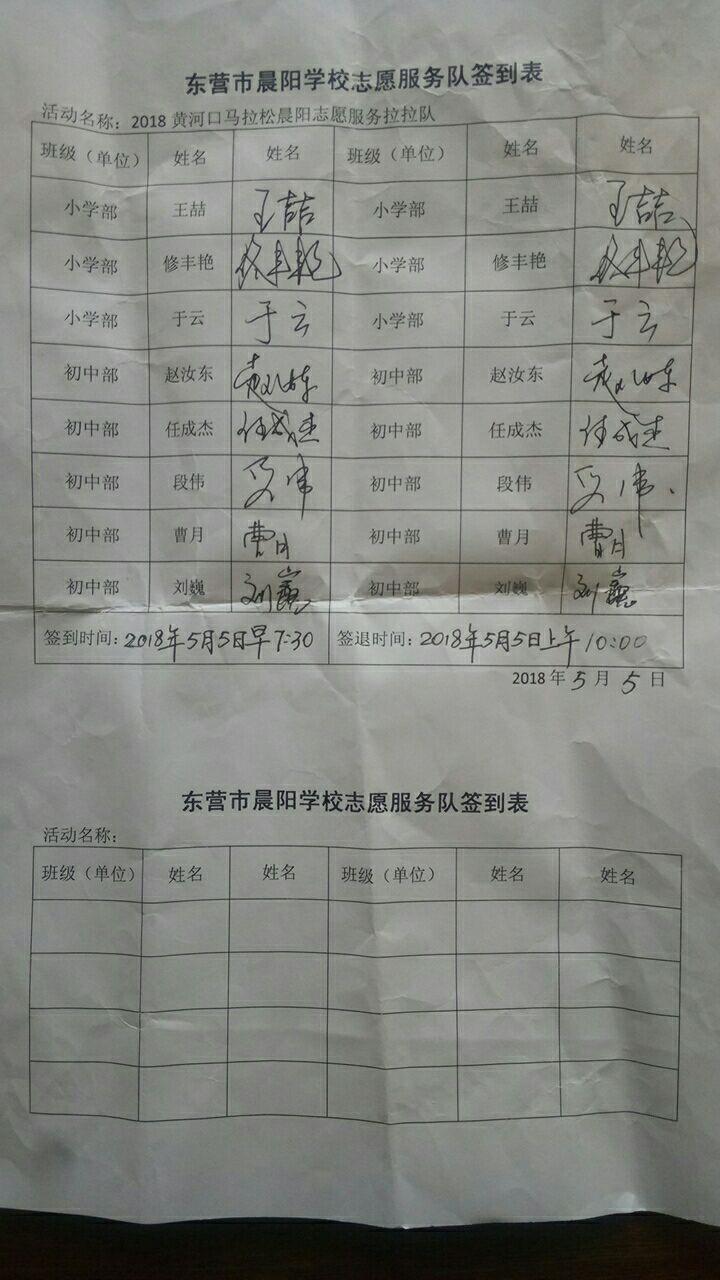 东营市晨阳学校志愿服务队签到表
活动名称：2018 黄河口马拉松晨阳志愿服务拉拉队
班级（单位） 姓名 姓名 班级（单位） 姓名 姓名
小学部 王喆 王喆 小学部 王喆 王喆
小学部 修丰艳 修丰艳 小学部 修丰艳 修丰艳
小学部 于云 于云 小学部 于云 于云
初中部 赵汝东 赵汝东 初中部 赵汝东 赵汝东
初中部 任成杰 任成杰 初中部 任成杰 任成杰
初中部 段伟 段伟 初中部 段伟 段伟
初中部 曹月 曹月 初中部 曹月 曹月
初中部 刘巍 刘巍 初中部 刘巍 刘巍
签到时间：2018年5月5日早7:30 签退时间：2018年5月5日上午10:00
2018 年 5 月 5 日
东营市晨阳学校志愿服务队签到表
活动名称：
班级（单位） 姓名 姓名 班级（单位） 姓名 姓名